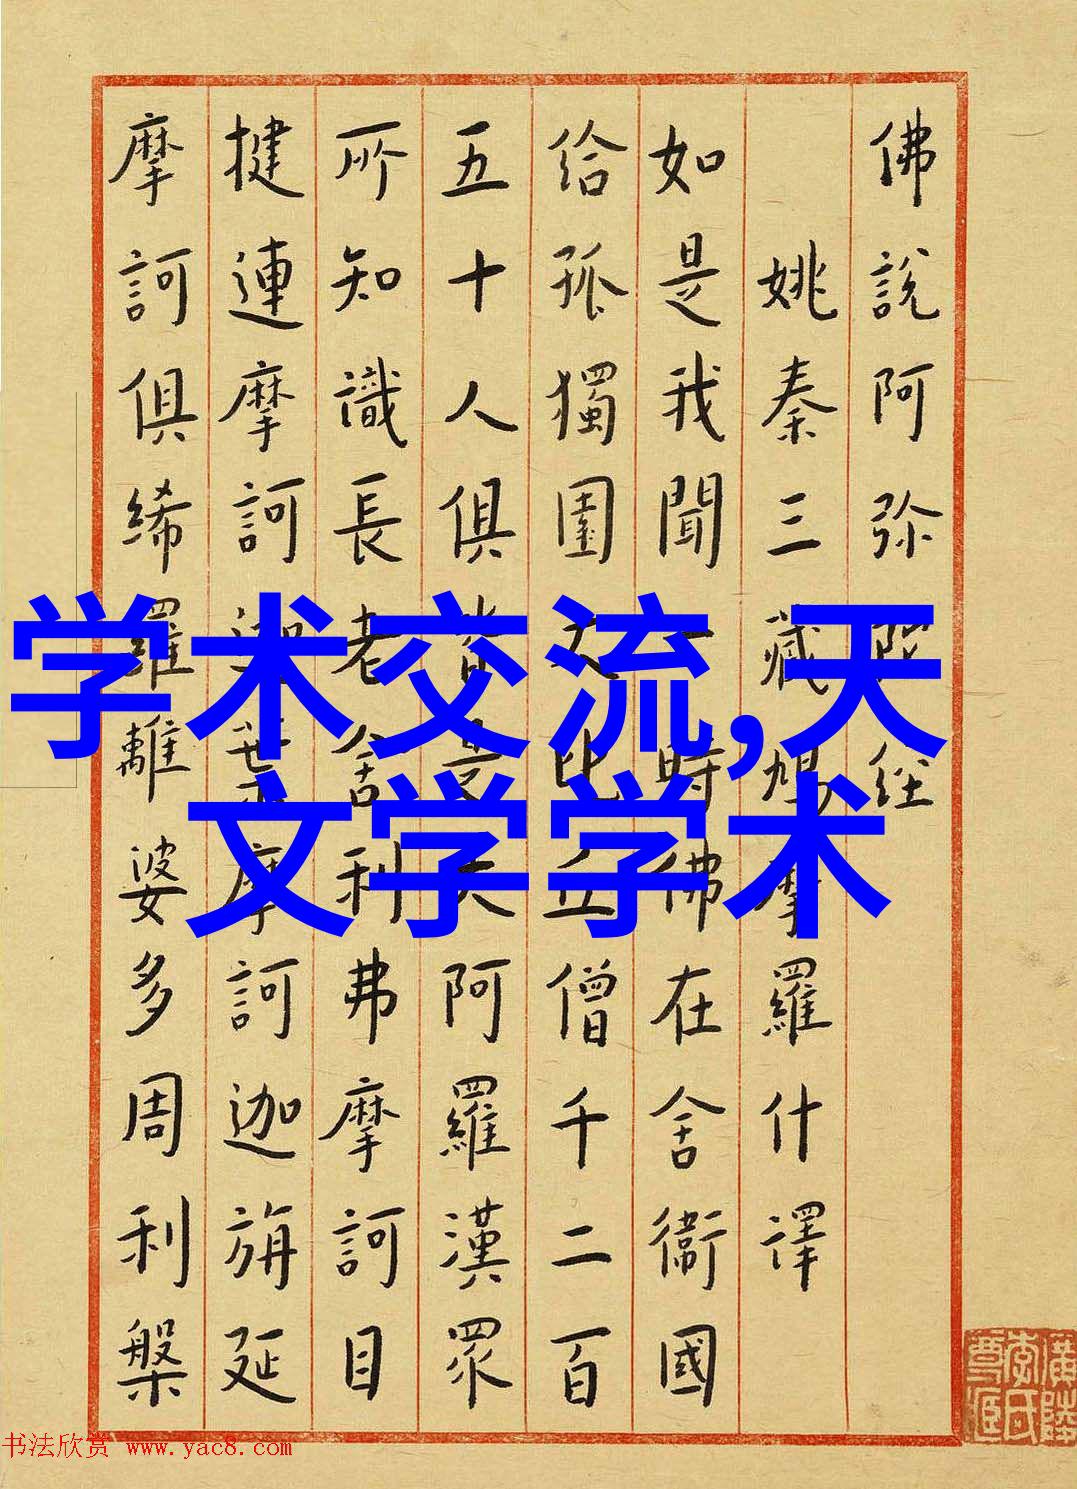 佛說阿弥陀经
姚秦三藏鳩摩羅什譯
如是我聞一時佛在舍衛國
给孤獨園大比丘僧千二百
五十人俱皆是大阿羅漢眾
所知識長老舍利弗摩訶目
揵連摩訶迦葉摩訶迦旃延
摩訶俱絺羅離婆多周利槃
学术交流,天
文学学术
书法欣赏 www.yac8.com